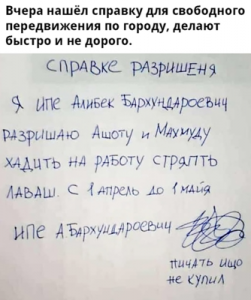 Вчера нашёл справку для свободного
передвижения по городу, делают
быстро и не дорого.
СПРАВКЕ РАЗРИШЕНЯ
Я ИПЕ Алибек Бархундароевич
РАЗРИШАЮ Ашоту и Махмуду
ХАДИТЬ НА РАБОТУ СТРЯПТЬ
ЛАВАШ. С 1 апрель до 1 майя
ИПЕ А.Бархундароевич
пичать ищо
не купил